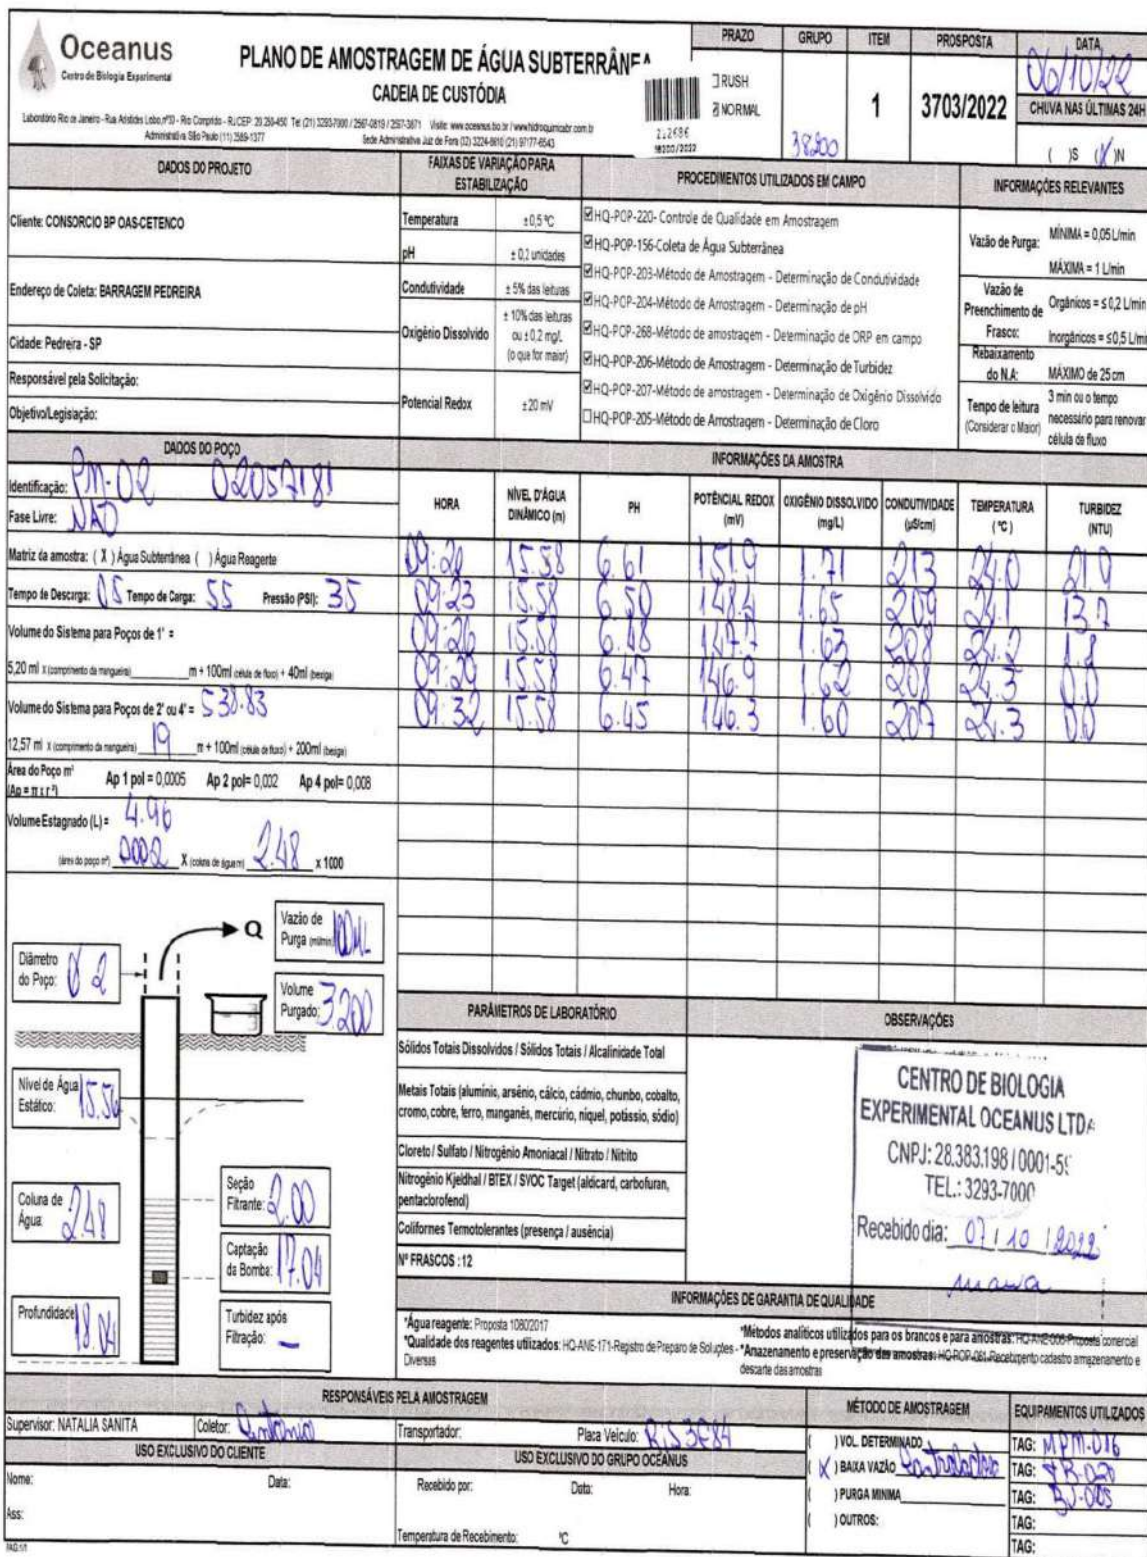 Oceanus
Centro de Biologia Experimental
PLANO DE AMOSTRAGEM DE ÁGUA SUBTERRÂNEA
CADEIA DE CUSTÓDIA
Laboratório Rio de Janeiro - Rua Aristides Lobo, nº30 - Rio Comprido - RJ CEP: 20.250-450 Tel (21) 3293-7000 / 2567-0819 / 2507-3871 Visite: www.oceanus.bio.br / www.hidroquimicabr.com.br
Administrativa São Paulo (11) 3589-1377 Sede Administrativa Juiz de Fora (32) 3224-8610 (21) 97177-6543
38200/2022
PRAZO GRUPO ITEM PROSPOSTA DATA
RUSH
NORMAL
38200
1
3703/2022
06/10/22
CHUVA NAS ÚLTIMAS 24H
( )S (X)N
DADOS DO PROJETO
Cliente: CONSORCIO BP OAS-CETENCO
Endereço de Coleta: BARRAGEM PEDREIRA
Cidade: Pedreira - SP
Responsável pela Solicitação:
Objetivo/Legislação:
FAIXAS DE VARIAÇÃO PARA ESTABILIZAÇÃO
Temperatura ±0,5 ºC
pH ± 0,2 unidades
Condutividade ± 5% das leituras
Oxigênio Dissolvido ± 10% das leituras
ou ± 0,2 mg/L
(o que for maior)
Potencial Redox ±20 mV
PROCEDIMENTOS UTILIZADOS EM CAMPO
☑HQ-POP-220- Controle de Qualidade em Amostragem
☑HQ-POP-156-Coleta de Água Subterrânea
☑HQ-POP-203-Método de Amostragem - Determinação de Condutividade
☑HQ-POP-204-Método de Amostragem - Determinação de pH
☑HQ-POP-268-Método de amostragem - Determinação de ORP em campo
☑HQ-POP-206-Método de Amostragem - Determinação de Turbidez
☑HQ-POP-207-Método de amostragem - Determinação de Oxigênio Dissolvido
☐HQ-POP-205-Método de Amostragem - Determinação de Cloro
INFORMAÇÕES RELEVANTES
Vazão de Purga: MÍNIMA = 0,05 L/min
MÁXIMA = 1 L/min
Vazão de Preenchimento de Frasco: Orgânicos = ≤ 0,2 L/min
Inorgânicos = ≤0,5 L/min
Rebaixamento do N.A: MÁXIMO de 25 cm
Tempo de leitura (Considerar o Maior) 3 min ou o tempo necessário para renovar célula de fluxo
DADOS DO POÇO
Identificação: PM-02 02057181
Fase Livre: NÃO
Matriz da amostra: ( X ) Água Subterrânea ( ) Água Reagente
Tempo de Descarga: 05 Tempo de Carga: 55 Pressão (PSI): 35
Volume do Sistema para Poços de 1" =
5,20 ml x (comprimento da mangueira) ______ m + 100ml (célula de fluxo) + 40ml (bexiga)
Volume do Sistema para Poços de 2" ou 4" = 538.83
12,57 ml x (comprimento da mangueira) 19 m + 100ml (célula de fluxo) + 200ml (bexiga)
Área do Poço m² (Ap = π x r ²) Ap 1 pol = 0,0005 Ap 2 pol= 0,002 Ap 4 pol= 0,008
Volume Estagnado (L) = 4.96
(área do poço m²) 0002 X (coluna de água m) 2.48 x 1000
INFORMAÇÕES DA AMOSTRA
HORA NÍVEL D'ÁGUA DINÂMICO (m) PH POTÊNCIAL REDOX (mV) OXIGÊNIO DISSOLVIDO (mg/L) CONDUTIVIDADE (µS/cm) TEMPERATURA (ºC) TURBIDEZ (NTU)
09:20 15.58 6.61 151.9 1.71 213 24.0 21.9
09:23 15.58 6.50 148.4 1.65 209 24.1 13.7
09:26 15.58 6.48 147.7 1.63 208 24.2 1.8
09:29 15.58 6.47 146.9 1.62 208 24.3 0.0
09:32 15.58 6.45 146.3 1.60 207 24.3 0.0
Q
Vazão de Purga (ml/min) 100ML
Diâmetro do Poço: Ø 2
Volume Purgado: 3.200
Nível de Água Estático: 15.56
Seção Filtrante: 2.00
Coluna de Água: 2.48
Captação da Bomba: 17.04
Profundidade 18.04
Turbidez após Filtração: —
PARÂMETROS DE LABORATÓRIO
Sólidos Totais Dissolvidos / Sólidos Totais / Alcalinidade Total
Metais Totais (aluminio, arsênio, cálcio, cádmio, chumbo, cobalto,
cromo, cobre, ferro, manganês, mercúrio, niquel, potássio, sódio)
Cloreto / Sulfato / Nitrogênio Amoniacal / Nitrato / Nitrito
Nitrogênio Kjeldhal / BTEX / SVOC Target (aldicard, carbofuran,
pentaclorofenol)
Coliformes Termotolerantes (presença / ausência)
Nº FRASCOS : 12
OBSERVAÇÕES
CENTRO DE BIOLOGIA
EXPERIMENTAL OCEANUS LTDA
CNPJ: 28.383.198/0001-59
TEL.: 3293-7000
Recebido dia: 07 / 10 / 2022
INFORMAÇÕES DE GARANTIA DE QUALIDADE
*Água reagente: Proposta 1080/2017
*Qualidade dos reagentes utilizados: HQ-ANE-171-Registro de Preparo de Soluções - Diversas
*Métodos analíticos utilizados para os brancos e para amostras: HQ-ANE-006-Proposta comercial
*Amazenamento e preservação das amostras: HQ-POP-081-Recebimento cadastro amazenamento e descarte das amostras
RESPONSÁVEIS PELA AMOSTRAGEM
Supervisor: NATALIA SANITA Coletor: Antônio Transportador: Placa Veículo: RIS3F84
USO EXCLUSIVO DO CLIENTE
Nome: Data:
Ass:
USO EXCLUSIVO DO GRUPO OCEANUS
Recebido por: Data: Hora:
Temperatura de Recebimento: ºC
MÉTODO DE AMOSTRAGEM
( ) VOL. DETERMINADO
( X ) BAIXA VAZÃO
( ) PURGA MINIMA
( ) OUTROS:
EQUIPAMENTOS UTILIZADOS
TAG: MPM-016
TAG:
TAG: BJ-005
TAG:
TAG:
PAG:1/1